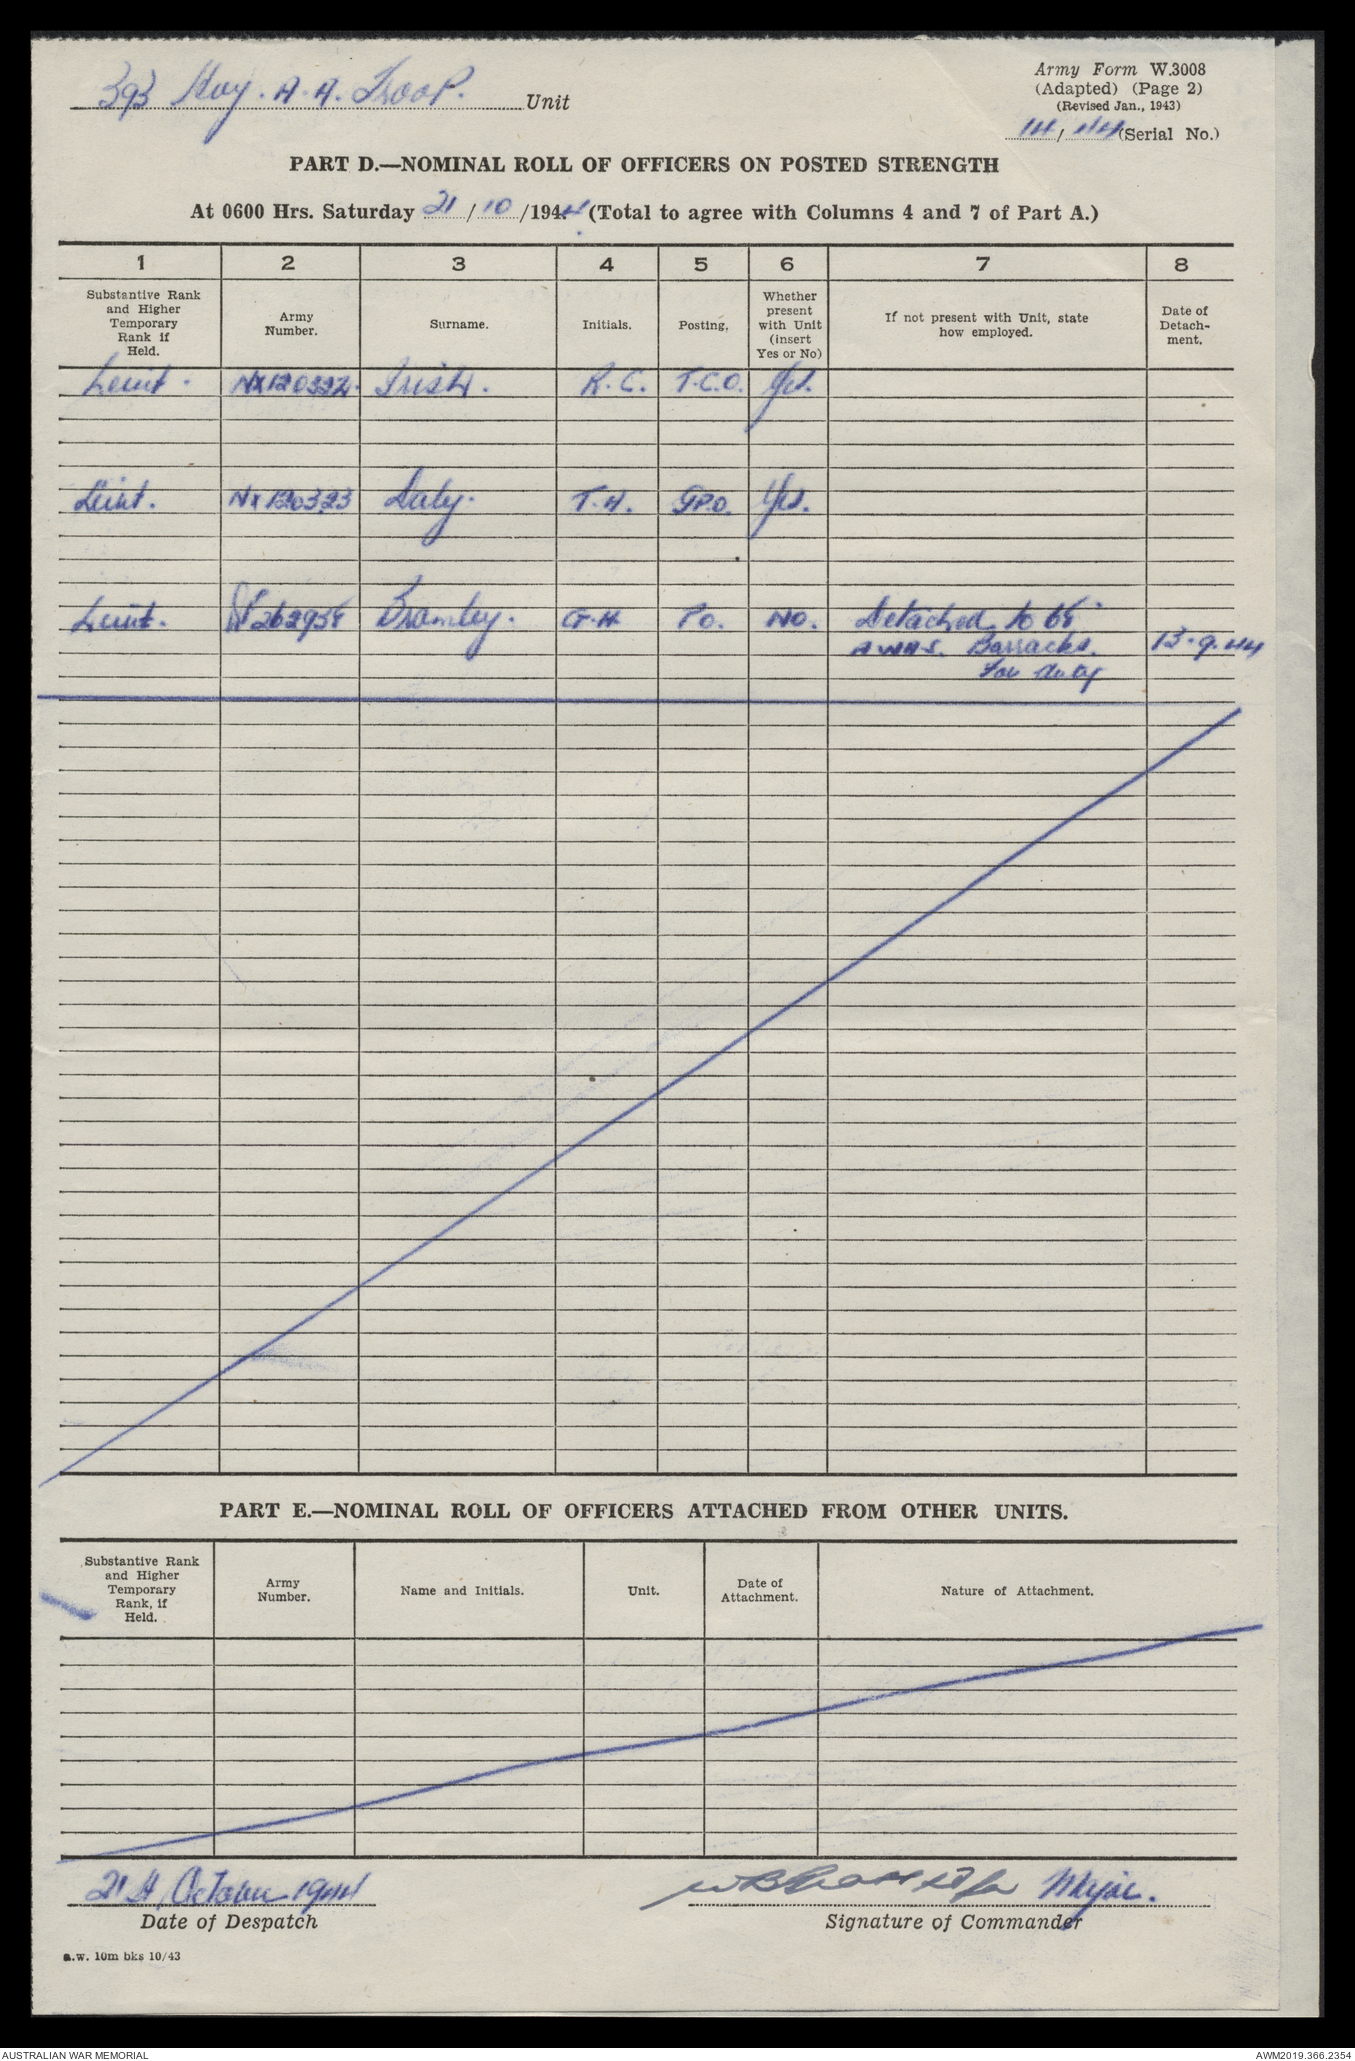 393 Hvy. A.A. Troop. Unit
Army Form W.3008
(Adapted) (Page 2)
(Revised Jan., 1943)
14 / 44 (Serial No.)
PART D.—NOMINAL ROLL OF OFFICERS ON POSTED STRENGTH
At 0600 Hrs. Saturday 21 / 10 /1944 (Total to agree with Columns 4 and 7 of Part A.)
1 2 3 4 5 6 7 8
Substantive Rank and Higher Temporary Rank if Held.
Army Number.
Surname.
Initials.
Posting.
Whether present with Unit (insert Yes or No)
If not present with Unit, state how employed.
Date of Detachment.
Lieut. Irish. R.C. T.C.O. Yes.
Lieut. NX120323 Daly. T.H. G.P.O. Yes.
Lieut. Bromley. G.H. P.O. NO. Detached to 68
A.W.A.S. Barracks. 13.9.44
For duty
PART E.—NOMINAL ROLL OF OFFICERS ATTACHED FROM OTHER UNITS.
Substantive Rank and Higher Temporary Rank, if Held.
Army Number.
Name and Initials.
Unit.
Date of Attachment.
Nature of Attachment.
21st October 1944 Major.
Date of Despatch Signature of Commander
a.w. 10m bks 10/43
AUSTRALIAN WAR MEMORIAL AWM2019.366.2354